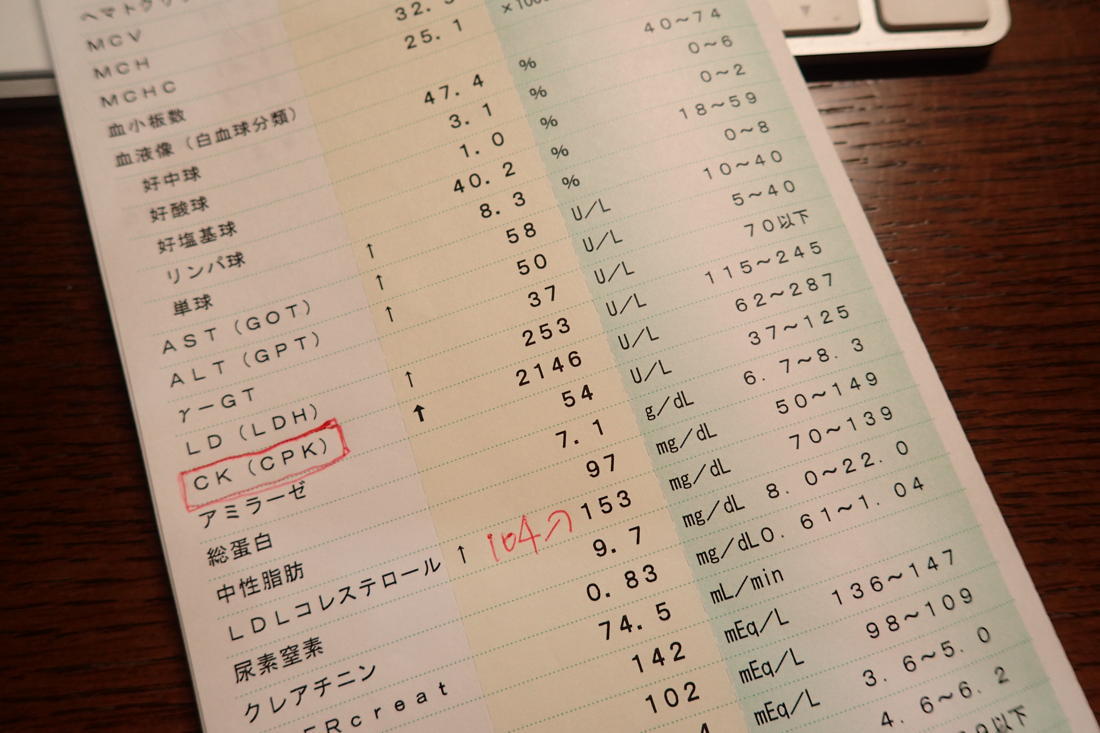 MCV
MCH
MCHC
血小板数 25.1
血液像（白血球分類）
好中球 47.4 % 40～74
好酸球 3.1 % 0～6
好塩基球 1.0 % 0～2
リンパ球 40.2 % 18～59
単球 ↑ 8.3 % 0～8
AST（GOT） ↑ 58 U/L 10～40
ALT（GPT） ↑ 50 U/L 5～40
γ－GT 37 U/L 70以下
LD（LDH） ↑ 253 U/L 115～245
CK（CPK） ↑ 2146 U/L 62～287
アミラーゼ 54 U/L 37～125
総蛋白 7.1 g/dL 6.7～8.3
中性脂肪 97 mg/dL 50～149
LDLコレステロール ↑ 104↗ 153 mg/dL 70～139
尿素窒素 9.7 mg/dL 8.0～22.0
クレアチニン 0.83 mg/dL 0.61～1.04
FRcreat 74.5 mL/min
142 mEq/L 136～147
102 mEq/L 98～109
mEq/L 3.6～5.0
4.6～6.2
以下